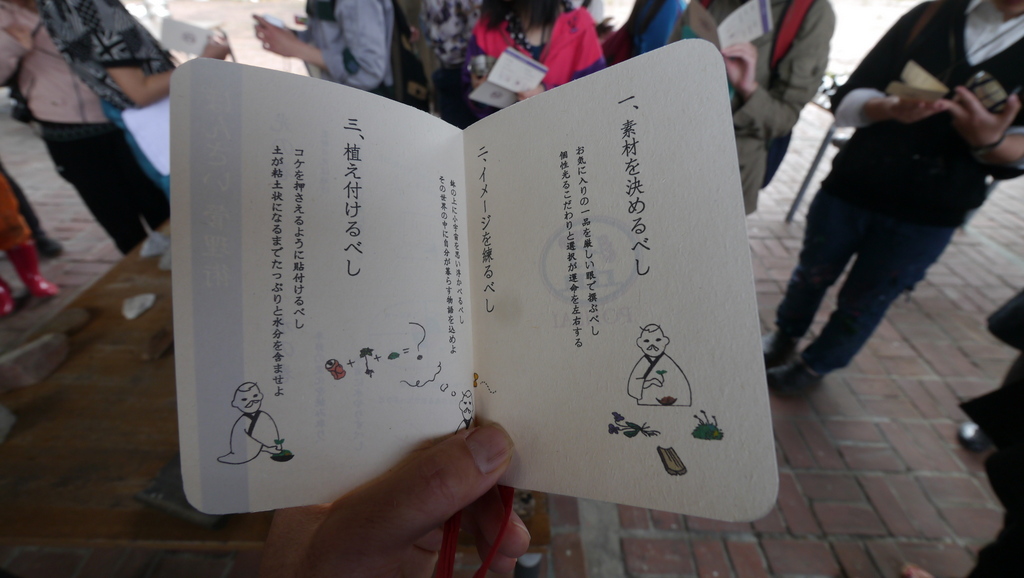 一、素材を決めるべし
お気に入りの一品を厳しい眼で撰ぶべし
個性光るこだわりと選択が運命を左右する
二、イメージを練るべし
鉢の上に小宇宙を思い浮かべるべし
その世界の中に自分が暮らす物語を込めよ
三、植え付けるべし
コケを押さえるように貼付けるべし
土が粘土状になるまでたっぷりと水分を含ませよ